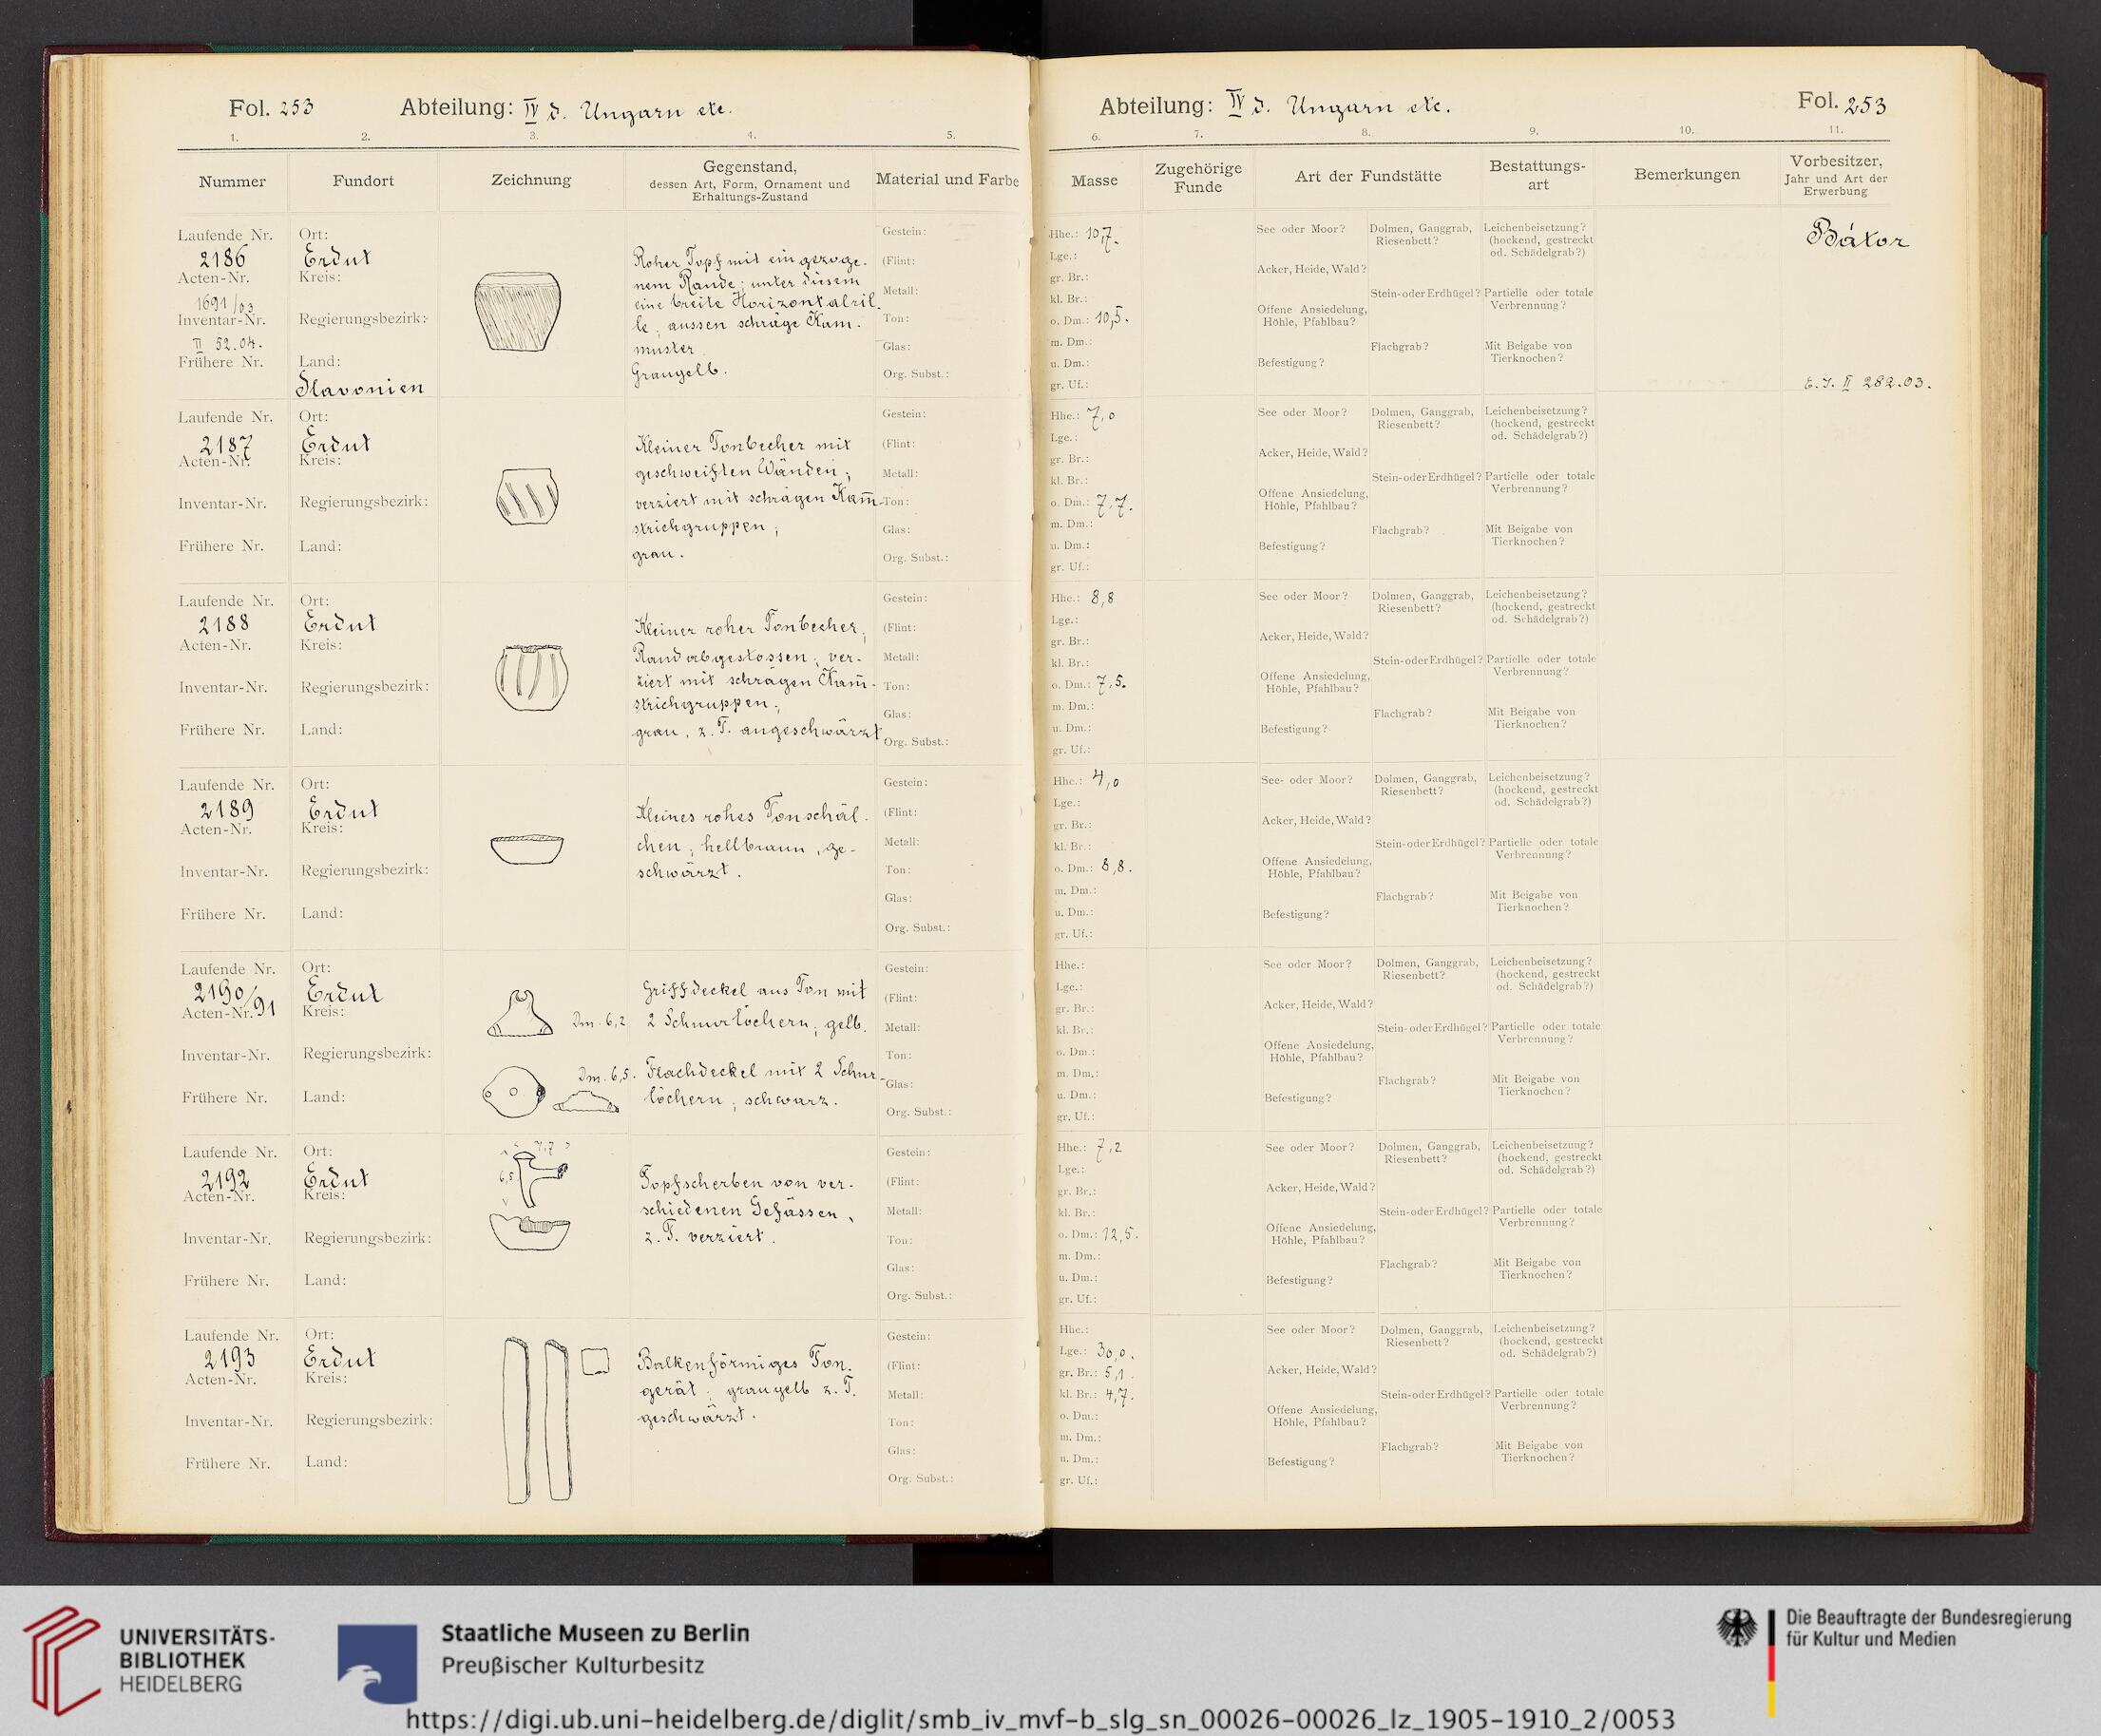 Fol. 253 Abteilung: IV d. Ungarn etc.
1. 2. 3. 4. 5.
Nummer Fundort Zeichnung Gegenstand, dessen Art, Form, Ornament und Erhaltungs-Zustand Material und Farbe
Laufende Nr. Ort: Gestein:
2186 Erdut Roher Topf mit eingezoge- (Flint: )
Acten-Nr. Kreis: nem Rande; unter diesem
1691/03 eine breite Horizontalril- Metall:
Inventar-Nr. Regierungsbezirk: le, aussen schräge Kam- Ton:
II 52.04. muster. Glas:
Frühere Nr. Land: Graugelb. Org. Subst.:
Slavonien
Laufende Nr. Ort: Gestein:
2187 Erdut Kleiner Tonbecher mit (Flint: )
Acten-Nr. Kreis: geschweiften Wänden; Metall:
Inventar-Nr. Regierungsbezirk: verziert mit schrägen Kam̅- Ton:
strichgruppen; Glas:
Frühere Nr. Land: grau. Org. Subst.:
Laufende Nr. Ort: Gestein:
2188 Erdut Kleiner roher Tonbecher; (Flint: )
Acten-Nr. Kreis: Rand abgestossen; ver- Metall:
Inventar-Nr. Regierungsbezirk: ziert mit schrägen Kam̅- Ton:
strichgruppen; Glas:
Frühere Nr. Land: grau, z. T. angeschwärzt Org. Subst.:
Laufende Nr. Ort: Gestein:
2189 Erdut Kleines rohes Tonschäl- (Flint:
Acten-Nr. Kreis: chen; hellbraun, ge- Metall:
Inventar-Nr. Regierungsbezirk: schwärzt. Ton:
Glas:
Frühere Nr. Land: Org. Subst.:
Laufende Nr. Ort: Gestein:
2190/91 Erdut Griffdeckel aus Ton mit (Flint:
Acten-Nr. Kreis: Dm. 6,2 2 Schnurlöchern; gelb. Metall:
Inventar-Nr. Regierungsbezirk: Ton:
Dm. 6,5. Flachdeckel mit 2 Schnur- Glas:
Frühere Nr. Land: löchern; schwarz. Org. Subst.:
Laufende Nr. Ort: 7,7 Gestein:
2192 Erdut 6,5 Topfscherben von ver- (Flint: )
Acten-Nr. Kreis: schiedenen Gefässen, Metall:
Inventar-Nr. Regierungsbezirk: z. T. verziert. Ton:
Glas:
Frühere Nr. Land: Org. Subst.:
Laufende Nr. Ort: Gestein:
2193 Erdut Balkenförmiges Ton- (Flint: )
Acten-Nr. Kreis: gerät; graugelb z. T. Metall:
Inventar-Nr. Regierungsbezirk: geschwärzt. Ton:
Glas:
Frühere Nr. Land: Org. Subst.:
Abteilung: IV d. Ungarn etc. Fol. 253
6. 7. 8. 9. 10. 11.
Masse Zugehörige Funde Art der Fundstätte Bestattungs-art Bemerkungen Vorbesitzer, Jahr und Art der Erwerbung
Hhe.: 10,7. See oder Moor? Dolmen, Ganggrab, Riesenbett? Leichenbeisetzung? (hockend, gestreckt od. Schädelgrab?) Bátor
Lge.:
gr. Br.: Acker, Heide, Wald?
kl. Br.: Stein- oder Erdhügel? Partielle oder totale Verbrennung?
o. Dm.: 10,5. Offene Ansiedelung, Höhle, Pfahlbau?
m. Dm.: Flachgrab? Mit Beigabe von Tierknochen?
u. Dm.: Befestigung?
gr. Uf.: E. J. II 282.03.
Hhe.: 7,0 See oder Moor? Dolmen, Ganggrab, Riesenbett? Leichenbeisetzung? (hockend, gestreckt od. Schädelgrab?)
Lge.:
gr. Br.: Acker, Heide, Wald?
kl. Br.: Stein- oder Erdhügel? Partielle oder totale Verbrennung?
o. Dm.: 7,7. Offene Ansiedelung, Höhle, Pfahlbau?
m. Dm.: Flachgrab? Mit Beigabe von Tierknochen?
u. Dm.: Befestigung?
gr. Uf.:
Hhe.: 8,8 See oder Moor? Dolmen, Ganggrab, Riesenbett? Leichenbeisetzung? (hockend, gestreckt od. Schädelgrab?)
Lge.:
gr. Br.: Acker, Heide, Wald?
kl. Br.: Stein- oder Erdhügel? Partielle oder totale Verbrennung?
o. Dm.: 7,5. Offene Ansiedelung, Höhle, Pfahlbau?
m. Dm.: Flachgrab? Mit Beigabe von Tierknochen?
u. Dm.: Befestigung?
gr. Uf.:
Hhe.: 4,0 See- oder Moor? Dolmen, Ganggrab, Riesenbett? Leichenbeisetzung? (hockend, gestreckt od. Schädelgrab?)
Lge.:
gr. Br.: Acker, Heide, Wald?
kl. Br.: Stein- oder Erdhügel? Partielle oder totale Verbrennung?
o. Dm.: 8,8. Offene Ansiedelung, Höhle, Pfahlbau?
m. Dm.: Flachgrab? Mit Beigabe von Tierknochen?
u. Dm.: Befestigung?
gr. Uf.:
Hhe.: See oder Moor? Dolmen, Ganggrab, Riesenbett? Leichenbeisetzung? (hockend, gestreckt od. Schädelgrab?)
Lge.:
gr. Br.: Acker, Heide, Wald?
kl. Br.: Stein- oder Erdhügel? Partielle oder totale Verbrennung?
o. Dm.: Offene Ansiedelung, Höhle, Pfahlbau?
m. Dm.: Flachgrab? Mit Beigabe von Tierknochen?
u. Dm.: Befestigung?
gr. Uf.:
Hhe.: 7,2 See oder Moor? Dolmen, Ganggrab, Riesenbett? Leichenbeisetzung? (hockend, gestreckt od. Schädelgrab?)
Lge.:
gr. Br.: Acker, Heide, Wald?
kl. Br.: Stein- oder Erdhügel? Partielle oder totale Verbrennung?
o. Dm.: 12,5. Offene Ansiedelung, Höhle, Pfahlbau?
m. Dm.: Flachgrab? Mit Beigabe von Tierknochen?
u. Dm.: Befestigung?
gr. Uf.:
Hhe.: See oder Moor? Dolmen, Ganggrab, Riesenbett? Leichenbeisetzung? (hockend, gestreckt od. Schädelgrab?)
Lge.: 30,0.
gr. Br.: 5,1. Acker, Heide, Wald?
kl. Br.: 4,7. Stein- oder Erdhügel? Partielle oder totale Verbrennung?
o. Dm.: Offene Ansiedelung, Höhle, Pfahlbau?
m. Dm.: Flachgrab? Mit Beigabe von Tierknochen?
u. Dm.: Befestigung?
gr. Uf.:
UNIVERSITÄTS-
BIBLIOTHEK
HEIDELBERG
Staatliche Museen zu Berlin
Preußischer Kulturbesitz
Die Beauftragte der Bundesregierung
für Kultur und Medien
https://digi.ub.uni-heidelberg.de/diglit/smb_iv_mvf-b_slg_sn_00026-00026_lz_1905-1910_2/0053